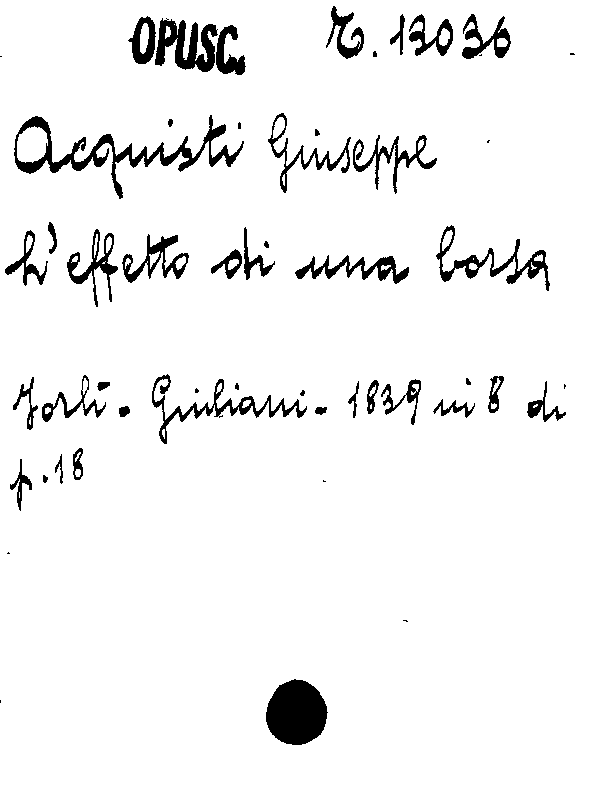 OPUSC. T. 13036
Acquisti Giuseppe
L'effetto di una borsa
Forlì - Giuliani - 1839 in 8 di
p. 18